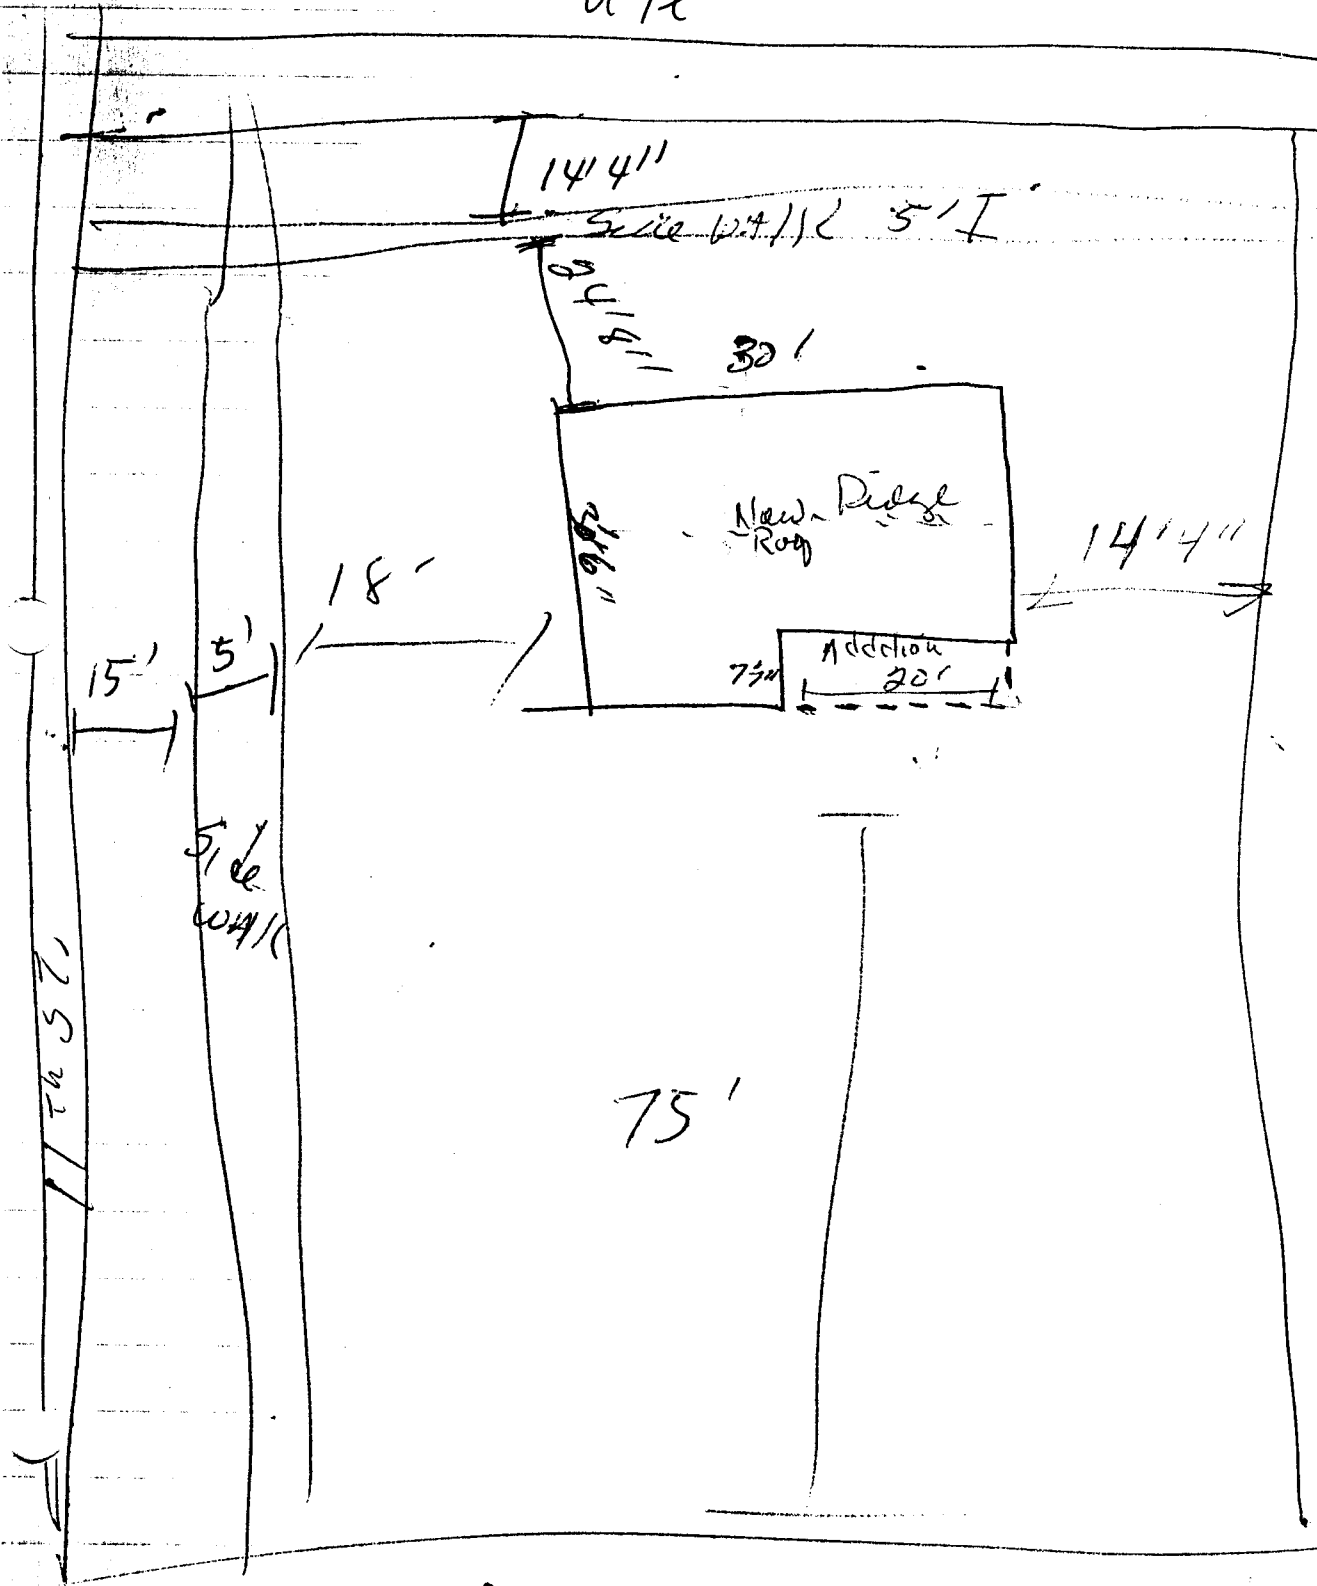 14'4"
Side WAlk 5'
24'8"
30'
New Ridge
Roof
14'4"
18'
5'
15'
Addition
20'
Side
WAlk
11 Th ST.
75'